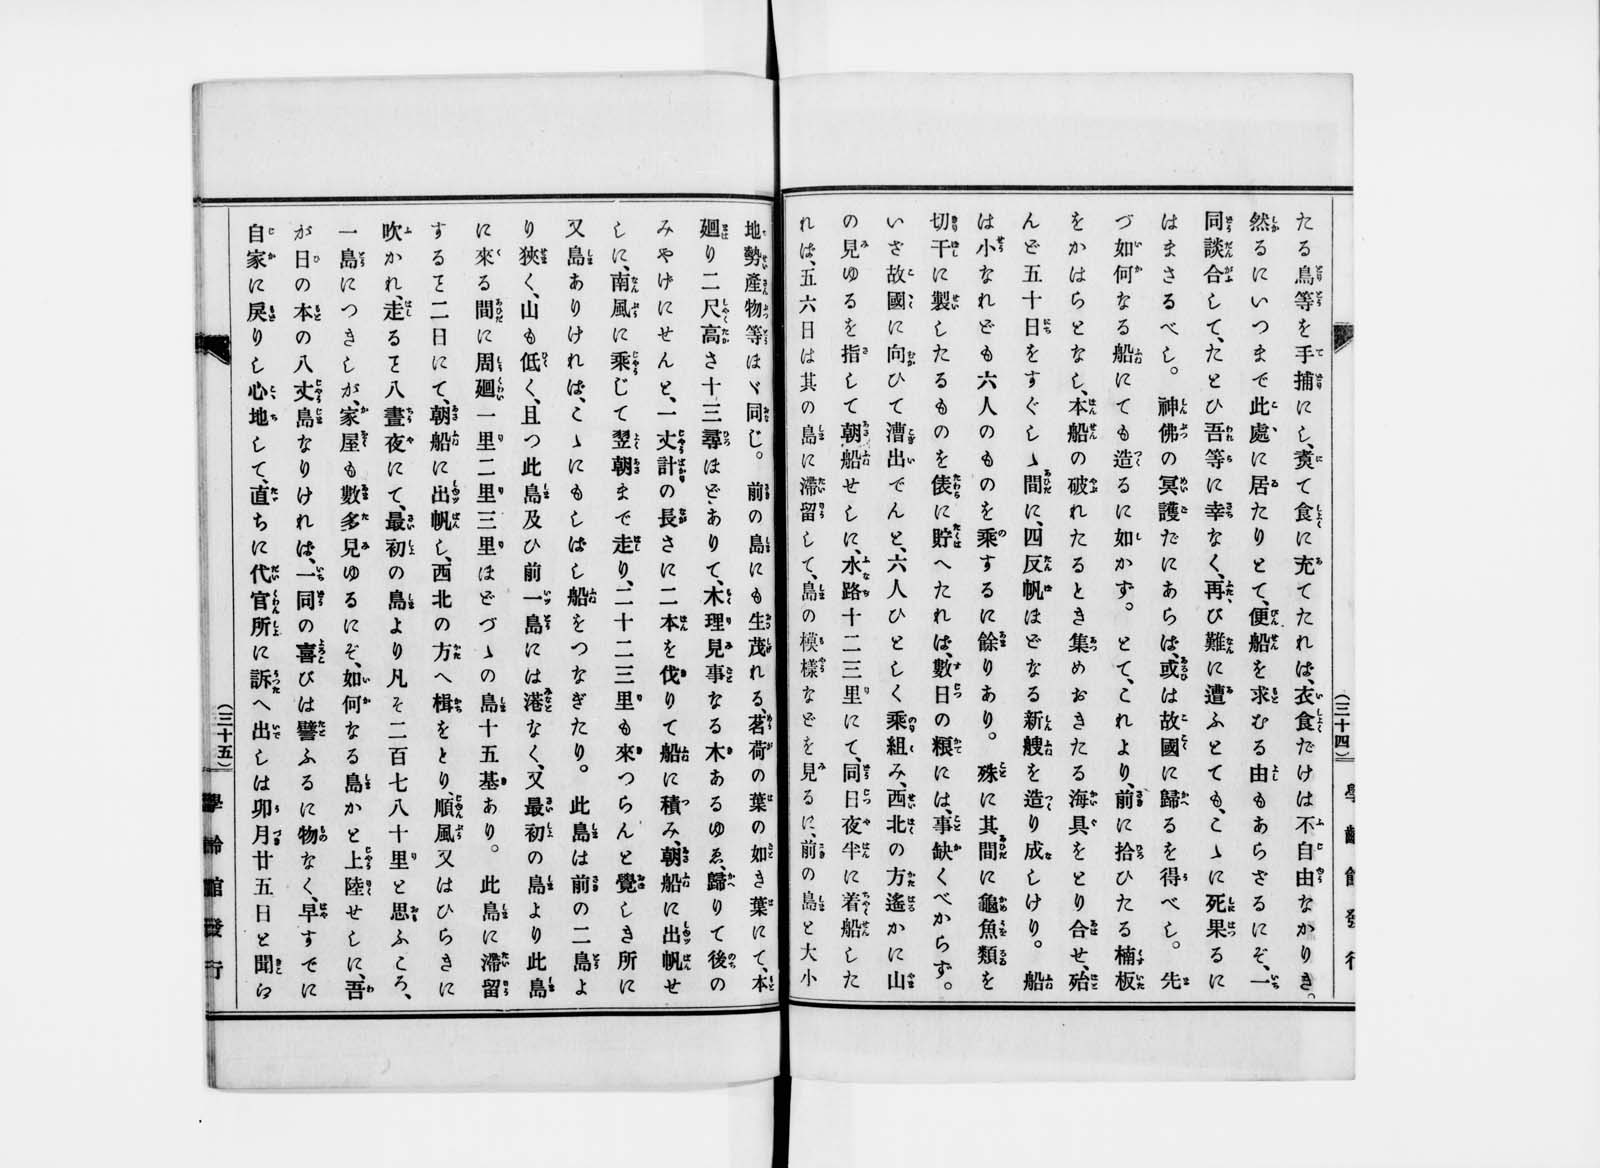 たる鳥等を手捕にし、煑て食に充てたれば、衣食だけは不自由なかりき。
然るにいつまで此處に居たりとて、便船を求むる由もあらざるにぞ、一
同談合して、たとひ吾等に幸なく、再び難に遭ふとても、こゝに死果るに
はまさるべし。神佛の冥護だにあらば、或は故國に歸るを得べし。先
づ如何なる船にても造るに如かず。とて、これより、前に拾ひたる楠板
をかはらとなし、本船の破れたるとき集めおきたる海具をとり合せ、殆
んど五十日をすぐしゝ間に、四反帆ほどなる新艘を造り成しけり。船
は小なれども六人のものを乘するに餘りあり。殊に其間に龜魚類を
切干に製したるものを俵に貯へたれば、數日の粮には、事缺くべからず。
いざ故國に向ひて漕出でんと、六人ひとしく乘組み、西北の方遙かに山
の見ゆるを指して朝船せしに、水路十二三里にて、同日夜半に着船した
れば、五六日は其の島に滯留して、島の模樣などを見るに、前の島と大小
(三十四)
學齡館發行
地勢產物等ほゞ同じ。前の島にも生茂れる、茗荷の葉の如き葉にて、本
廻り二尺高さ十三尋ほどありて、木理見事なる木あるゆゑ、歸りて後の
みやげにせんと、一丈計の長さに二本を伐りて船に積み、朝船に出帆せ
しに、南風に乘じて翌朝まで走り、二十二三里も來つらんと覺しき所に
又島ありければ、こゝにもしばし船をつなぎたり。此島は前の二島よ
り狹く、山も低く、且つ此島及ひ前一島には港なく、又最初の島より此島
に來る間に周廻一里二里三里ほどづゝの島十五基あり。此島に滯留
するて二日にて、朝船に出帆し、西北の方へ楫をとり、順風又はひらきに
吹かれ、走るて八晝夜にて、最初の島より凡そ二百七八十里と思ふころ、
一島につきしが、家屋も數多見ゆるにぞ、如何なる島かと上陸せしに、吾
が日の本の八丈島なりければ、一同の喜びは譬ふるに物なく、早すでに
自家に戾りし心地して、直ちに代官所に訴へ出しは卯月廿五日と聞ゆ
(三十五)
學齡館發行